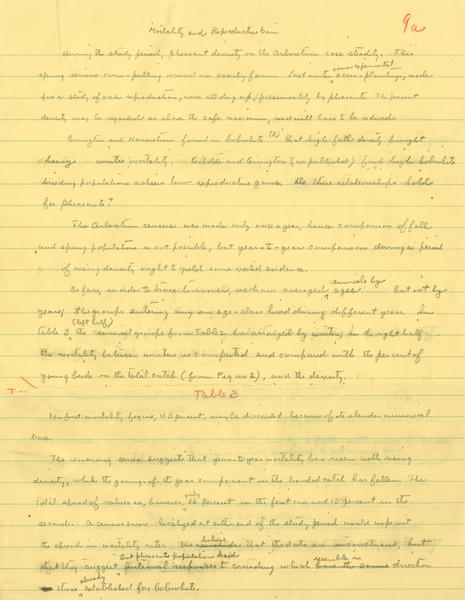 9a
Mortality and Reproductive Gain
During the study period, pheasant density on the Arboretum rose steadily. This
spring serious corn-pulling occurred on a nearby farm. Last winter some experimental acorn-plantings, made
for a study of oak reproduction, were all dug up, presumably by pheasants. The present
density may be regarded as above the safe maximum, and will have to be reduced.
Errington and Hamerstrom found in bobwhite (3) that high fall density brought
heavy winter mortality. Leopold and Errington (unpublished) find high bobwhite
breeding populations achieve low reproductive gains. Do these relationships hold
for pheasants?
The Arboretum census was made only once a year, hence comparison of fall
and spring population is not possible, but year-to-year comparisons during a period
of rising density ought to yield some valid evidence.
So far, in order to trace turnover, we have averaged survivals by ages but not by
years; the groups entering any one age-class lived during different years. In
table 3, (left half) the groups from Table 2 are arranged by winters; in the right half
the mortality between winters is computed and compared with the percent of
young birds in the total catch (from Figure 2), and the density.
T--
Table 3
The first mortality figure, 45 percent, may be discarded because of its slender numerical
base.
The remaining series suggests that year-to-year mortality has risen with rising
density, while the young-of-the-year component in the banded catch has fallen. The
total spread of values is, however, only 16 percent in the first case and 13 percent in the
second. A census error localized at either end of the study period would
the spread in mortality rate. believe that the data are inconclusive, but
that they suggest that pheasant populations have responses to crowding which resemble in direction
those already established for bobwhite.